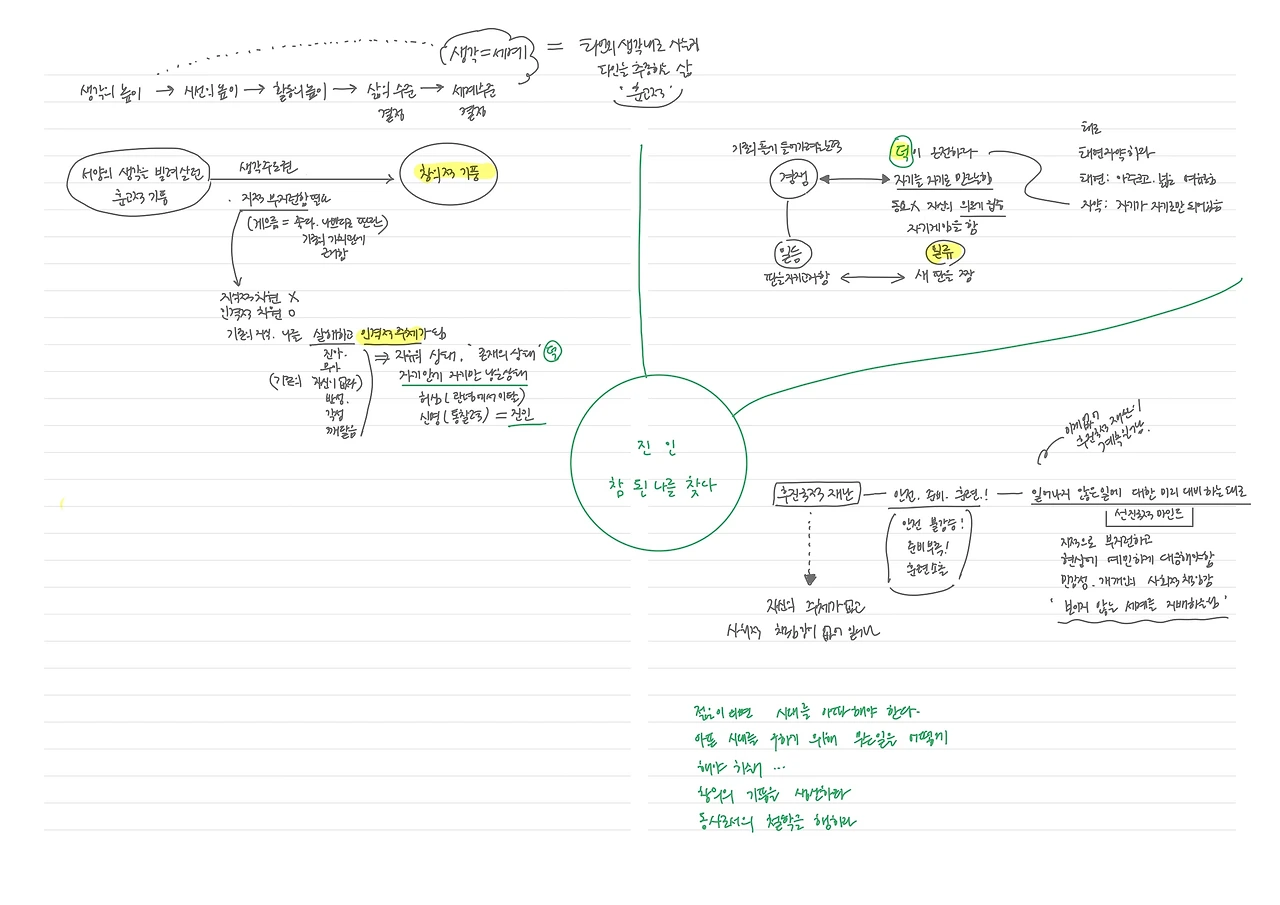 생각 = 세계 = 타인의 생각대로 사는게
타인을 추종하는 삶
'훈고적'
생각의 높이 → 시선의 높이 → 활동의 높이 → 삶의 수준 → 세계수준
결정 결정
서양의 생각을 빌려살던
훈고적 기풍
생각주도권
창의적 기풍
· 지적 부지런함 필요
(게으름 = 좋다. 나쁘다로 판단)
기존의 가치관에
근거함
지적 차원 X
인격적 차원 O
기존의 나를 살해하고 인격적 주체가 됨
진아.
무아
(기존의 자신이 없다)
반성.
각성
깨달음
⇒ 자유의 상태, '존재의 상태' 덕
자기안에 자기만 남은상태
허심 (관념에서 이탈)
신명 (통찰력) = 진인
기존의 틀에 들어가려
경쟁
덕이 온전하다
자기를 자기로 만드는힘
동요 X 자신의 의로
자기게임을 함
일등
판을 지키고
일류
새 판을 짬
태도
태연자약하라
태연: 아주크고 넓은
자약: 자기가 자기로만 되어있음
진 인
참 된 나를 찾다
후진국적 재난 — 안전. 준비. 훈련.! — 일어나지 않은일에 대한 미리 대비하는 태도
안전 불감증!
준비부족!
훈련소홀
후진국적 재난이
계속 일어남.
선진국적 마인드
지적으로 부지런하고
현상에 예민하게 대응해야함
민감성. 개개인의 사회적 책임감
'보이지 않는 세계를 지배하는 힘'
자신의 주체가 없고
사회적 책임감이 없어 일어나
젊은이라면 시대를 아파해야 한다.
아픈 시대를 구하기 위해 무슨일을 어떻게
해야 하나 ...
창의의 기풍을 생산하라
동사로서의 철학을 행하라